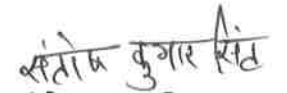 संतोष कुमार सिंह